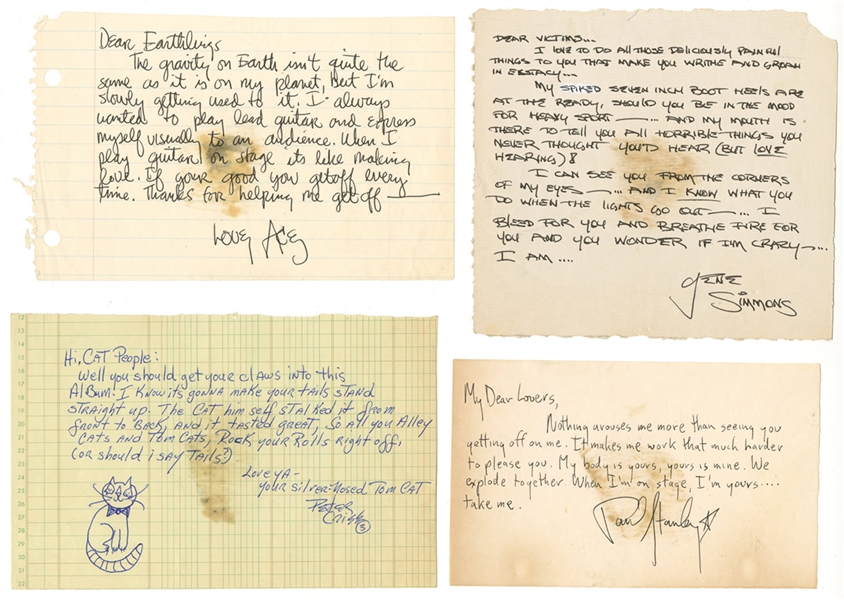 Dear Earthlings
The gravity on Earth isn't quite the
same as it is on my planet, but I'm
slowly getting used to it. I always
wanted to play lead guitar and express
myself visually to an audience. When I
play guitar on stage its like making
love. If your good you getoff every
time. Thanks for helping me getoff —
Love, Ace
DEAR VICTIMS...
I LOVE TO DO ALL THOSE DELICIOUSLY PAINFUL
THINGS TO YOU THAT MAKE YOU WRITHE AND GROAN
IN ESTACY...
MY SPIKED SEVEN INCH BOOT HEELS ARE
AT THE READY, SHOULD YOU BE IN THE MOOD
FOR HEAVY SPORT —... AND MY MOUTH IS
THERE TO TELL YOU ALL HORRIBLE THINGS YOU
NEVER THOUGHT YOU'D HEAR (BUT LOVE
HEARING)!
I CAN SEE YOU FROM THE CORNERS
OF MY EYES —... AND I KNOW WHAT YOU
DO WHEN THE LIGHTS GO OUT —... I
BLEED FOR YOU AND BREATHE FIRE FOR
YOU AND YOU WONDER IF I'M CRAZY —...
I AM ....
GENE
SIMMONS
12
13
14
15
16
17
18
19
20
21
22
23
24
25
26
27
28
29
30
31
32
Hi, CAT People:
Well you should get your claws into this
AlBum! I Know its gonna make your tails STAND
STRAIGHT up. The CAT him self STAlked it from
front to Back, and it tasted great, So all you Alley
CATS AND TOM CATS, Rock your Rolls right off,
(or should i say Tails?)
Love YA -
your silver-Nosed Tom CAT
Peter
Criss
My Dear Lovers,
Nothing arouses me more than seeing you
getting off on me. It makes me work that much harder
to please you. My body is yours, yours is mine. We
explode together. When I'm on stage, I'm yours....
take me.
Paul Stanley